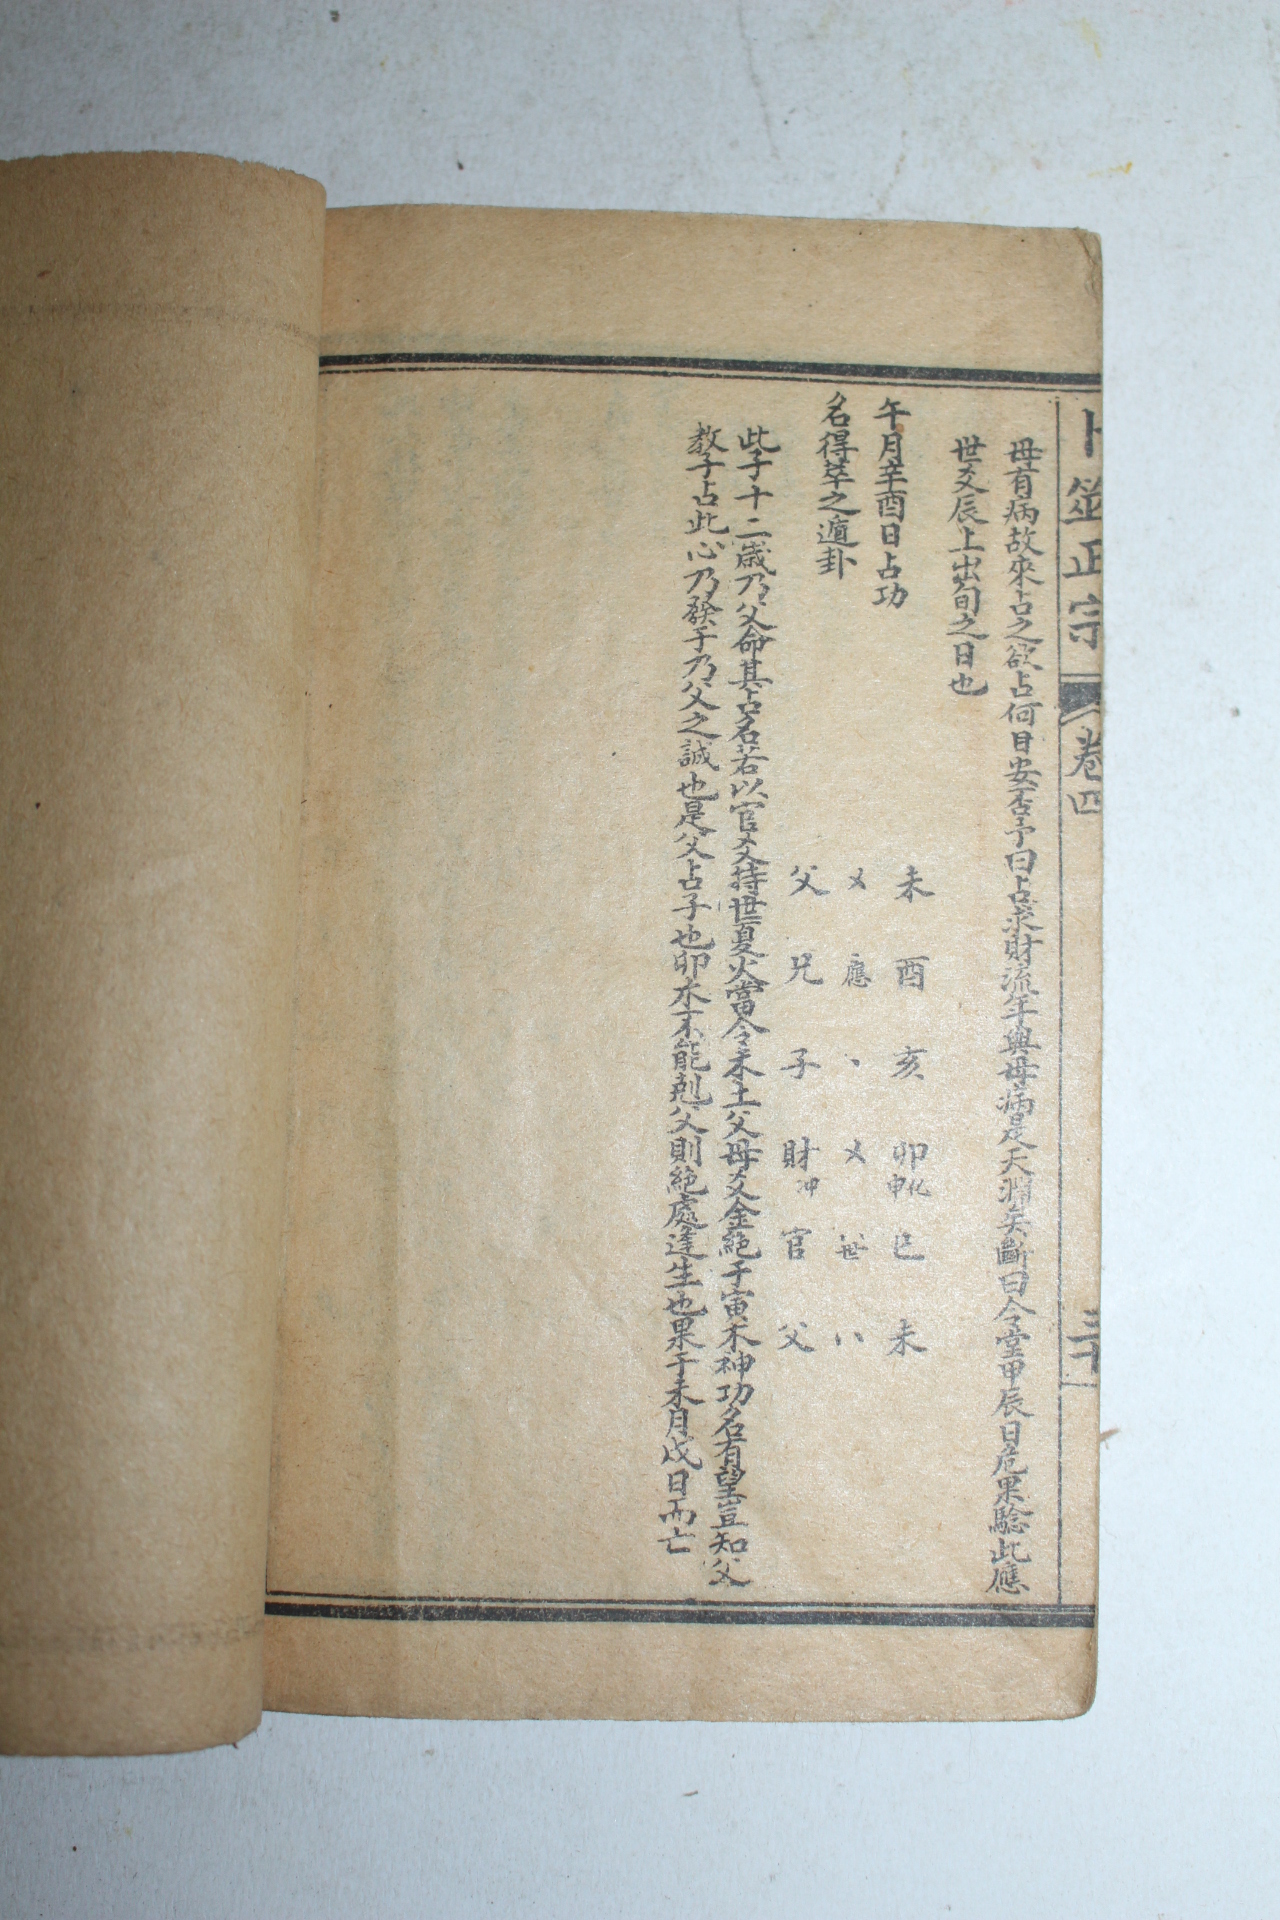 卜筮正宗 卷四 三十
母有病故來占之欲占何日安否予曰占求財流年與母病是天淵矣斷曰令堂甲辰日危果驗此應
世爻辰上出旬之日也
午月辛酉日占功
名得萃之遁卦
未 酉 亥 卯 化申 巳 未
乂 應 、 乂 世 八
父 兄 子 財 冲 官 父
此子十二歲乃父命其占名若以官爻持世夏火當令未土父母爻金絕于寅木神功名有望豈知父
教子占此心乃發于乃父之誠也是父占子也卯木不能剋父則絕處逢生也果于未月戌日而亡